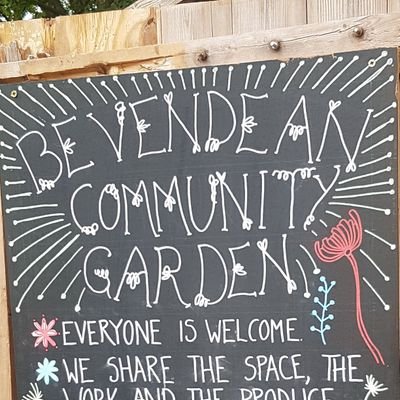 BEVENDEAN
COMMUNITY
GARDEN
EVERYONE IS WELCOME.
WE SHARE THE SPACE, THE
WORK AND THE PRODUCE